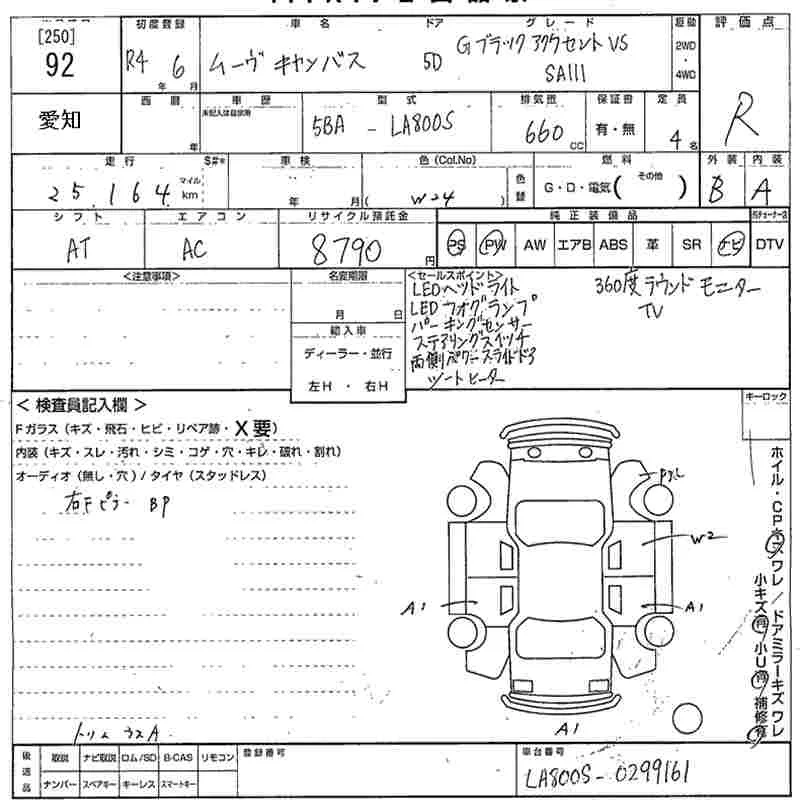 [250]
92
初度登録
R4 6
年 月
車名
ムーヴ キャンバス
ドア
5D
グレード
G ブラックアクセント VS
SAIII
駆動
2WD
・
4WD
評価点
R
愛知
西暦
年
車歴
型式
5BA - LA800S
排気量
660 cc
保証書
有・無
定員
4名
走行
25,164
マイル
km
S#*
車検
年 月
色 (Col.No)
( W24 )
色替
燃料
G・D・電気( その他 )
外装
B
内装
A
シフト
AT
エアコン
AC
リサイクル預託金
8790 円
純正装備品
PS PW AW エアB ABS 革 SR ナビ DTV
<注意事項>
名変期限
月 日
輸入車
ディーラー・並行
左H ・ 右H
<セールスポイント>
LEDヘッドライト
LED フォグランプ
パーキングセンサー
ステアリングスイッチ
両側パワースライドドア
シートヒーター
360度ラウンド モニター
TV
< 検査員記入欄 >
Fガラス (キズ・飛石・ヒビ・リペア跡・X要)
内装 (キズ・スレ・汚れ・シミ・コゲ・穴・キレ・破れ・割れ)
オーディオ (無し・穴) / タイヤ (スタッドレス)
右Fピラー BP
キーロック
W2
A1
A1
A1
ホイル・CPキズワレ / ドアミラーキズワレ
小キズ有 小U有 補修有
後送品
取説 ナビ取説 ロム/SD B-CAS リモコン
ナンバー スペアキー キーレス スマートキー
登録番号
車台番号
LA800S-0299161